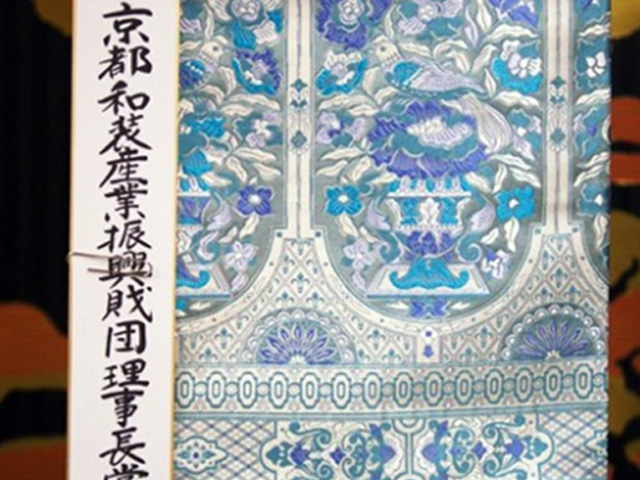 京都和装産業振興財団理事長賞